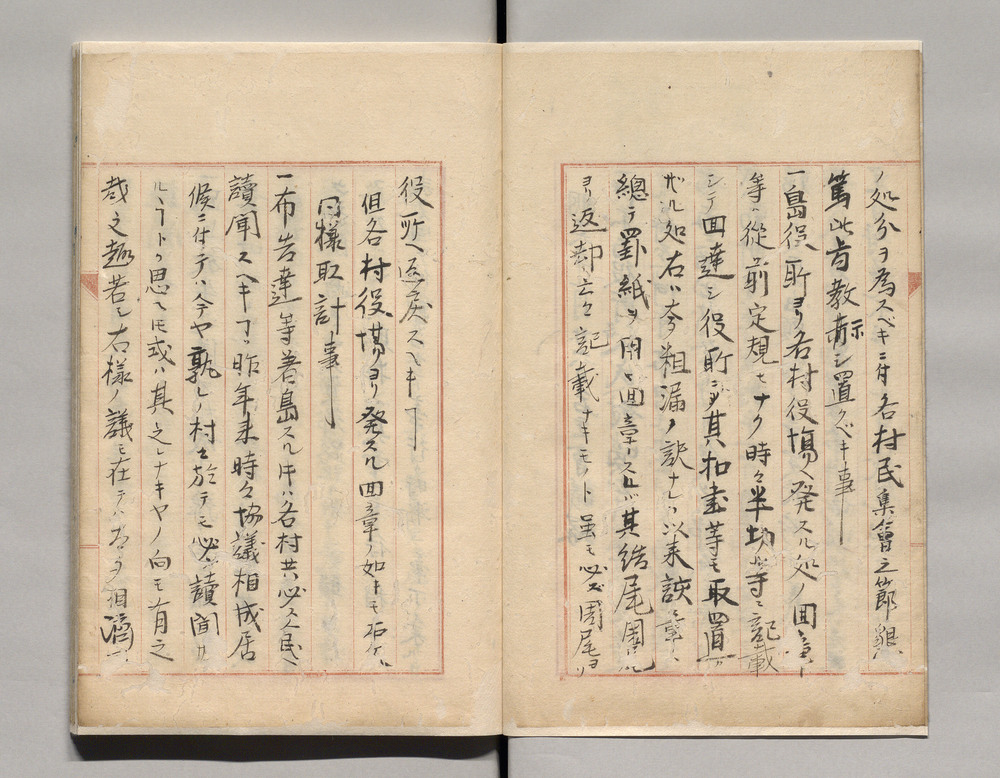 ノ処分ヲ為スベキニ付各村民集會之節懇
篤此旨教示シ置クベキ事
一島役所ヨリ各村役場ヘ発スル処ノ回章
等ハ従前定規モナク時々半切等ニ記載
シテ回達シ役所ニテ其扣書等モ取置
ザル如右ハ本粗漏ノ訳ナレハ以来該章ハ
總テ罫紙ヲ用ヒ回章スレバ其結尾周
ヨリ返却云々記載ナキモノト虽モ必ズ周尾ヨリ
役所ヘ返戻スヘキヿ
但各村役場ヨリ発スル回章ノ如キモ
同様取計事
一布告達等着島スル片ハ各村共必ス人民ヘ
讀聞スヘキヿハ昨年来時々協議相成居
候ニ付テハ今ヤ孰レノ村ニ於テモ必ズ讀聞サ
ルヿトハ思ヘ𪜈或ハ其之レナキヤノ向モ有之
哉之趣若シ右様ノ議モ在テハ